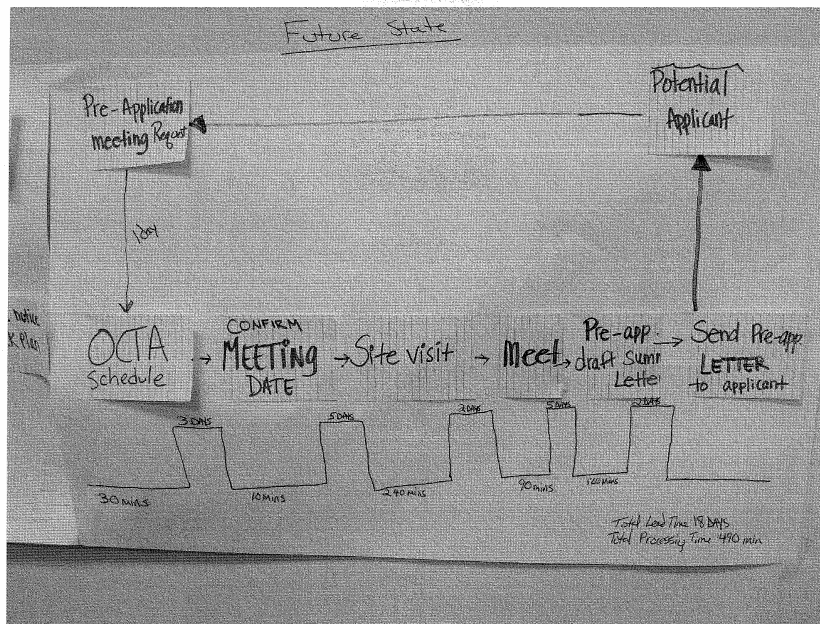 Future State
Pre-Application
meeting Request
Potential
Applicant
1day
notice
K Plan
OCTA
Schedule
CONFIRM
MEETING
DATE
Site visit
Meet
Pre-app.
draft Summ
Letter
Send Pre-app
LETTER
to applicant
3 DAYS
5 DAYS
2 DAYS
5 DAYS
2 DAYS
30 mins
10 mins
240 mins
90 mins
120 mins
Total Lead Time 18 DAYS
Total Processing Time 490 min